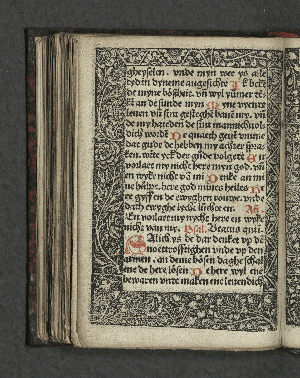 gheyselen. vnde myn wee ys alle
tyd in dyneme angesichte Ik bekē
de myne böszheit. vn̄ wyl yümer dē
kē an de sunde myn Myne vyende
leuen vn̄ sint gesteghet bauē my. vn̄
de my hateden de sint mannichuol
dich wordē De quaeth geue vmme
dat gude de hebben my achter sprakē
ken. wēte yck der güde volgete En
vorlaet my nicht here myn god. vn̄
en wyke nicht vā mi Denke an mi
ne hülpe. here god mines heiles He
re gyff en de ewyghen rouwe. vnde
dath ewyghe lycht lüchte en. Añ.
En vorlaet my nyche here en wyke
nicht van my. Psal. Beatus qui.
Salich ys de dar denket vp dē
noettrofftighen vnde vp den
armen. an deme bösen daghe schal
ene de here lösen De here wyl ene
bewaren vnde maken ene leuendich